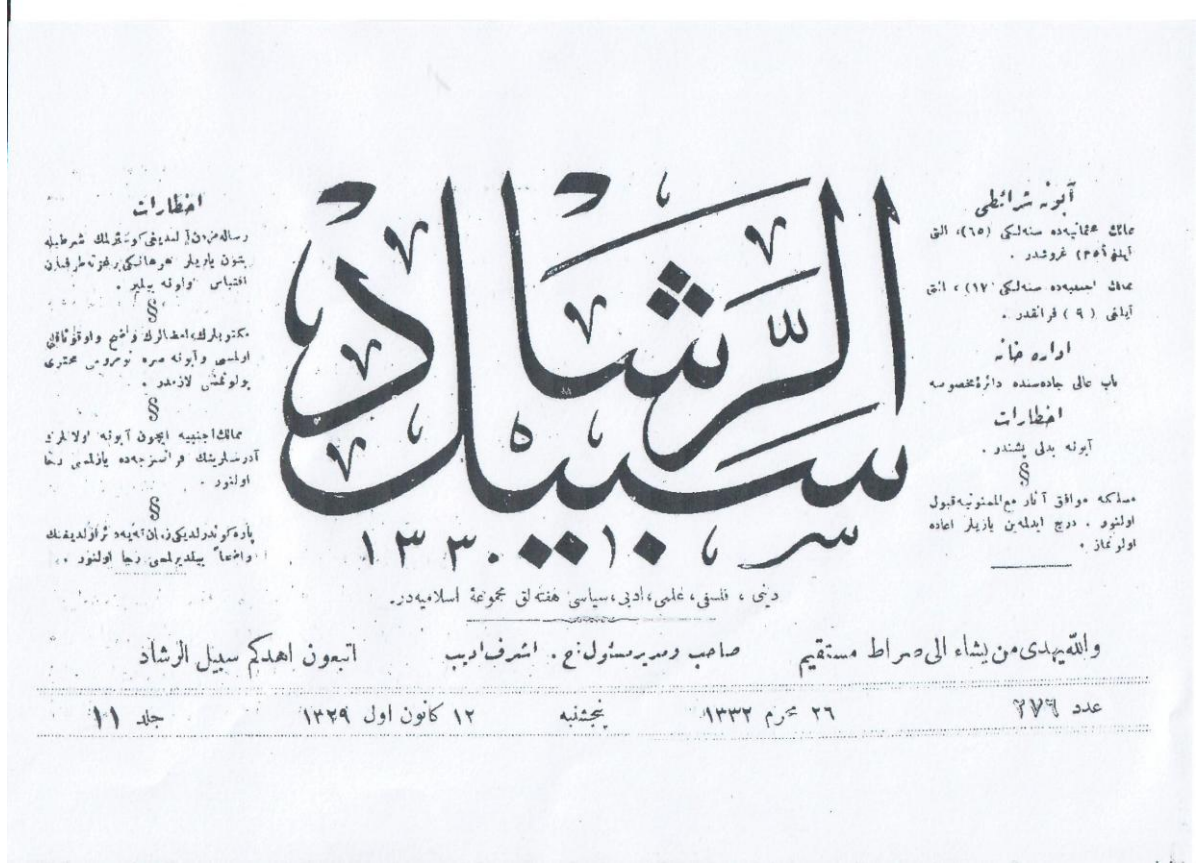 آبونه شرائطی
ممالك عثمانیه‌ده سنه‌لكی (٦٥)، التی
آیلغی (٣٥) غروشدر .
ممالك اجنبیه‌ده سنه‌لكی (١٧) ، التی
آیلغی ( ٩ ) فرانقدر .
اداره خانه
باب عالی جاده‌سنده دائرهٔ مخصوصه
اخطارات
آبونه بدلی پشیندر .
§
مسلكه موافق آثار مع الممنونیه قبول
اولنور . درج ایدلمه‌ین یازیلر اعاده
اولونماز .
سبیل الرشاد
١٣٣٠
اخطارات
رساله‌مزدن آلندیغی كوسترلمك شرطیله
بتون یازیلر هر هانكی بر غزته طرفندن
اقتباس اولونه بیلیر .
§
مكتوبلرك، امضالرك واضح و اوقوناقلی
اولمسی و آبونه صره نومروسی محتوی
بولونمسی لازمدر .
§
ممالك اجنبیه ایچون آبونه اولانلرك
آدرسلرینك فرانسزجه‌ده یازلمسی رجا
اولنور .
§
پاره كوندرلدیكی زمان نه‌یه دائر اولدیغنك
واضحاً بیلدیرلمسی رجا اولنور .
دینی ، فلسفی ، علمی ، ادبی ، سیاسی هفته‌لق مجموعهٔ اسلامیه‌در.
والله یهدی من یشاء الی صراط مستقیم
صاحب و مدیر مسئول : ح . اشرف ادیب
اتبعون اهدكم سبیل الرشاد
عدد ٢٧٦
٢٦ محرم ١٣٣٢
پنجشنبه
١٢ كانون اول ١٣٢٩
جلد ١١